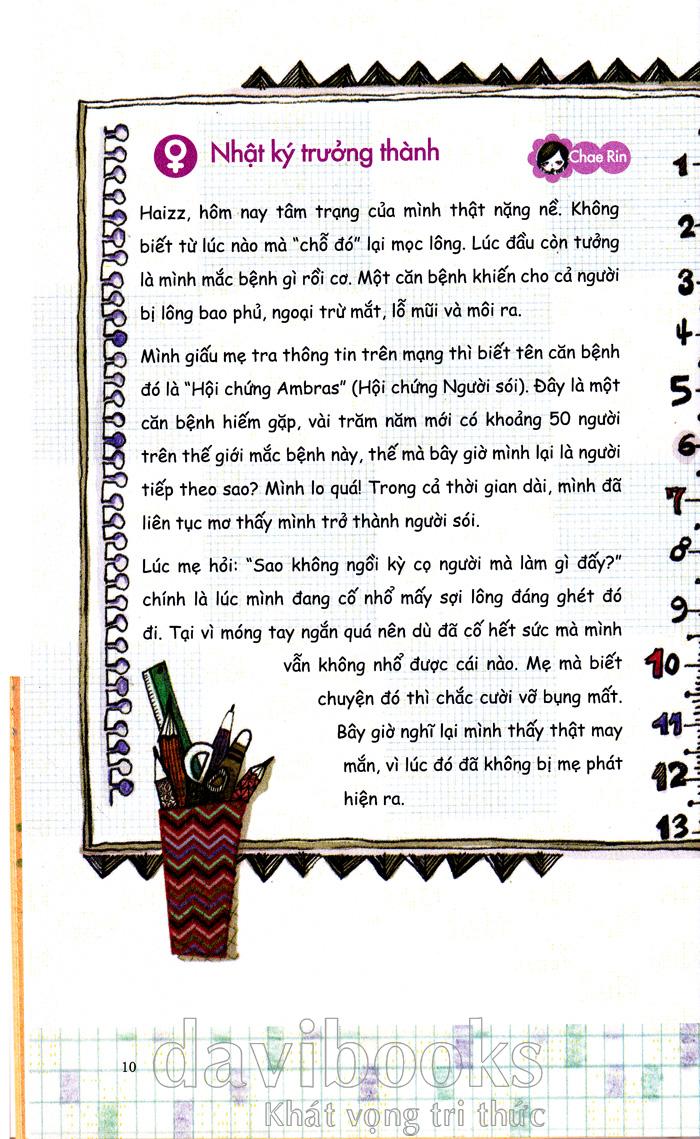 Nhật ký trưởng thành
Chae Rin
Haizz, hôm nay tâm trạng của mình thật nặng nề. Không
biết từ lúc nào mà “chỗ đó” lại mọc lông. Lúc đầu còn tưởng
là mình mắc bệnh gì rồi cơ. Một căn bệnh khiến cho cả người
bị lông bao phủ, ngoại trừ mắt, lỗ mũi và môi ra.
Mình giấu mẹ tra thông tin trên mạng thì biết tên căn bệnh
đó là “Hội chứng Ambras” (Hội chứng Người sói). Đây là một
căn bệnh hiếm gặp, vài trăm năm mới có khoảng 50 người
trên thế giới mắc bệnh này, thế mà bây giờ mình lại là người
tiếp theo sao? Mình lo quá! Trong cả thời gian dài, mình đã
liên tục mơ thấy mình trở thành người sói.
Lúc mẹ hỏi: “Sao không ngồi kỳ cọ người mà làm gì đấy?”
chính là lúc mình đang cố nhổ mấy sợi lông đáng ghét đó
đi. Tại vì móng tay ngắn quá nên dù đã cố hết sức mà mình
vẫn không nhổ được cái nào. Mẹ mà biết
chuyện đó thì chắc cười vỡ bụng mất.
Bây giờ nghĩ lại mình thấy thật may
mắn, vì lúc đó đã không bị mẹ phát
hiện ra.
1
2
3
4
5
6
7
8
9
10
11
12
13
10
davibooks
Khát vọng tri thức